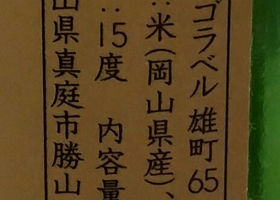 ゴラベル 雄町65
:米(岡山県産)、
:15度 内容量
山県真庭市勝山